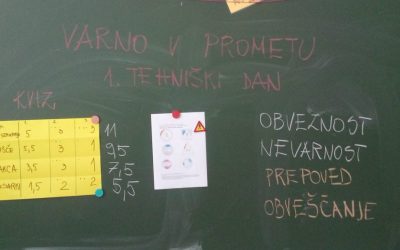 VARNO V PROMETU
1. TEHNIŠKI DAN
KVIZ
5 3 3 11
5,5 3 1 9,5
3,5 3 1 7,5
1,5 2 2 5,5
OBVEZNOST
NEVARNOST
PREPOVED
OBVEŠČANJE